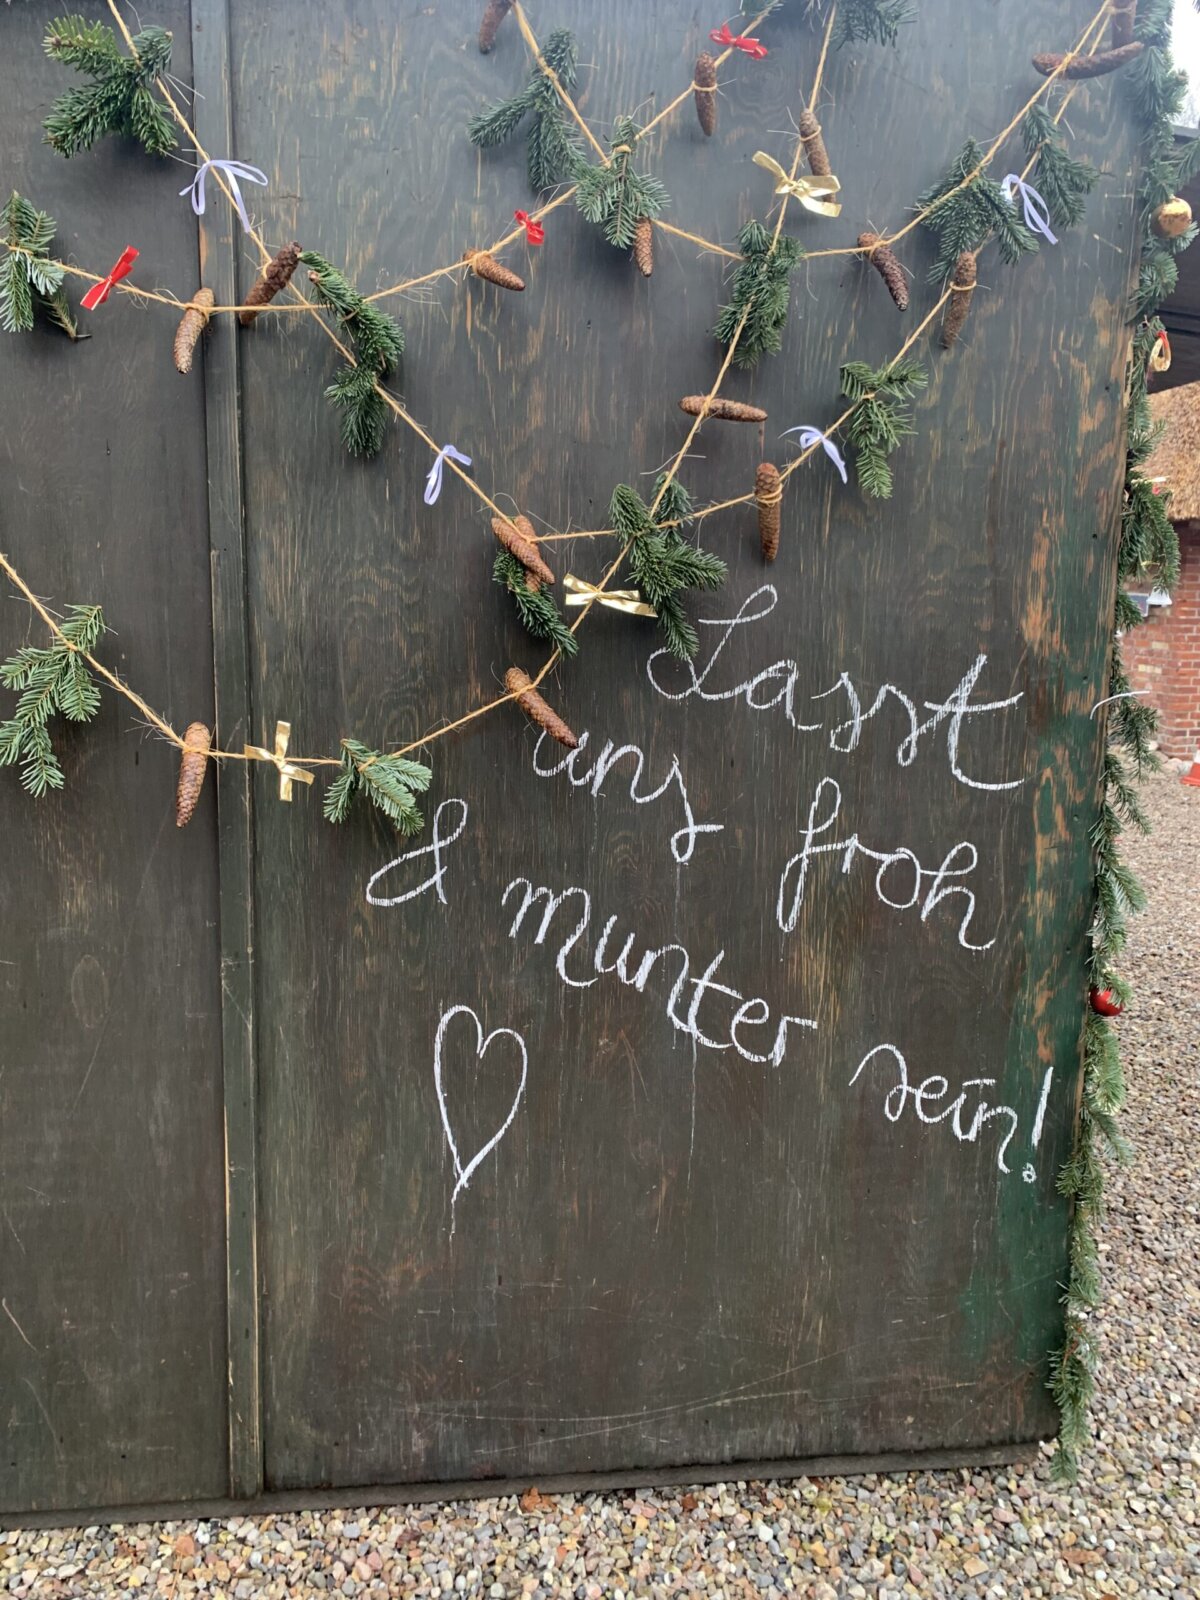 Lasst
uns froh
& munter
sein!